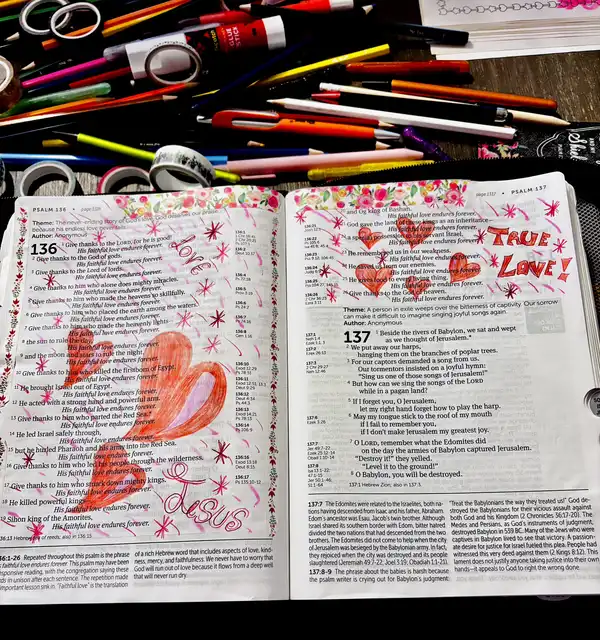 PSALM 136
page 532
Theme: The never-ending story of God's love. God deserves our praise
because his endless love never fails.
Author: Anonymous
136
Give thanks to the LORD, for he is good!
His faithful love endures forever.
2 Give thanks to the God of gods.
His faithful love endures forever.
3 Give thanks to the Lord of lords.
His faithful love endures forever.
4 Give thanks to him who alone does mighty miracles.
His faithful love endures forever.
5 Give thanks to him who made the heavens so skillfully.
His faithful love endures forever.
6 Give thanks to him who placed the earth among the waters.
His faithful love endures forever.
7 Give thanks to him who made the heavenly lights
His faithful love endures forever.
8 the sun to rule the day,
His faithful love endures forever.
9 and the moon and stars to rule the night.
His faithful love endures forever.
10 Give thanks to him who killed the firstborn of Egypt.
His faithful love endures forever.
11 He brought Israel out of Egypt.
His faithful love endures forever.
12 He acted with a strong hand and powerful arm.
His faithful love endures forever.
13 Give thanks to him who parted the Red Sea.
His faithful love endures forever.
14 He led Israel safely through,
His faithful love endures forever.
15 but he hurled Pharaoh and his army into the Red Sea.
His faithful love endures forever.
16 Give thanks to him who led his people through the wilderness.
His faithful love endures forever.
17 Give thanks to him who struck down mighty kings.
His faithful love endures forever.
18 He killed powerful kings
His faithful love endures forever.
19 Sihon king of the Amorites,
His faithful love endures forever.
love
Jesus
136:13 Hebrew sea of reeds; also in 136:15
136:1-26 Repeated throughout this psalm is the phrase
"His faithful love endures forever." This psalm may have been a
responsive reading, with the congregation saying these
words in unison after each sentence. The repetition made
this important lesson sink in. "Faithful love" is the translation
of a rich Hebrew word that includes aspects of love, kind-
ness, mercy, and faithfulness. We never have to worry that
God will run out of love because it flows from a deep well
that will never run dry.
PSALM 137
and Og king of Bashan.
His faithful love endures forever.
God gave the land of these kings as an inheritance
His faithful love endures forever.
a special possession to his servant Israel.
His faithful love endures forever.
He remembered us in our weakness.
His faithful love endures forever.
He saved us from our enemies.
His faithful love endures forever.
He gives food to every living thing.
His faithful love endures forever.
Give thanks to the God of heaven.
His faithful love endures forever.
TRUE
LOVE!
Theme: A person in exile weeps over the bitterness of captivity. Our sorrow
can make it difficult to imagine singing joyful songs again.
Author: Anonymous
137
Beside the rivers of Babylon, we sat and wept
as we thought of Jerusalem.*
2 We put away our harps,
hanging them on the branches of poplar trees.
3 For our captors demanded a song from us.
Our tormentors insisted on a joyful hymn:
"Sing us one of those songs of Jerusalem!"
4 But how can we sing the songs of the LORD
while in a pagan land?
5 If I forget you, O Jerusalem,
let my right hand forget how to play the harp.
6 May my tongue stick to the roof of my mouth
if I fail to remember you,
if I don't make Jerusalem my greatest joy.
7 O LORD, remember what the Edomites did
on the day the armies of Babylon captured Jerusalem.
"Destroy it!" they yelled.
"Level it to the ground!"
8 O Babylon, you will be destroyed.
137:1 Hebrew Zion; also in 137:3
137:7 The Edomites were related to the Israelites, both na-
tions having descended from Isaac and his father, Abraham.
Edom's ancestor was Esau, Jacob's twin brother. Although
Israel shared its southern border with Edom, bitter hatred
divided the two nations that had descended from the two
brothers. The Edomites did not come to help when the city
of Jerusalem was besieged by the Babylonian army. In fact,
they rejoiced when the city was destroyed and its people
slaughtered (Jeremiah 49:7-22; Joel 3:19; Obadiah 1:1-21).
137:8-9 The phrase about the babies is harsh because
the psalm writer is crying out for Babylon's judgment:
"Treat the Babylonians the way they treated us!" God de-
stroyed the Babylonians for their vicious assault against
God and his kingdom (2 Chronicles 36:17-20). The
Medes and Persians, as God's instruments of judgment,
destroyed Babylon in 539 BC. Many of the Jews who were
captives in Babylon lived to see that victory. A passion-
ate desire for justice for Israel fueled this plea. People had
witnessed this very deed against them (2 Kings 8:12). This
lament does not justify anyone taking justice into their own
hands—it appeals to God to right the wrong done.